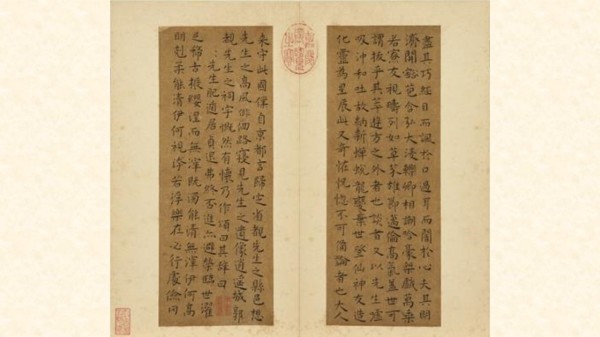 盡其巧經目而諷於口過耳而闇於心夫其明
濟開豁苞含弘大凌轢卿相謿哂豪桀戲萬乘
若寮友視疇列如草芥雄節邁倫高氣蓋世可
謂拔乎其萃遊方之外者也談者又以先生噓
吸沖和吐故納新蟬蛻龍變棄世登仙神友造
化靈為星辰此又奇怪恍惚不可備論者也大人
來守此國僕自京都言歸定省覩先生之縣邑想
先生之高風俳佪路寢見先生之遺像逍遙城郭
觀先生之祠宇慨然有懷乃作頌曰其辭曰
先生肥遁居貞退弗終否進亦避榮臨世濯
足稀古振纓涅而無滓既濁能清無滓伊何高
明克柔能清伊何視汙若浮樂在必行處儉罔